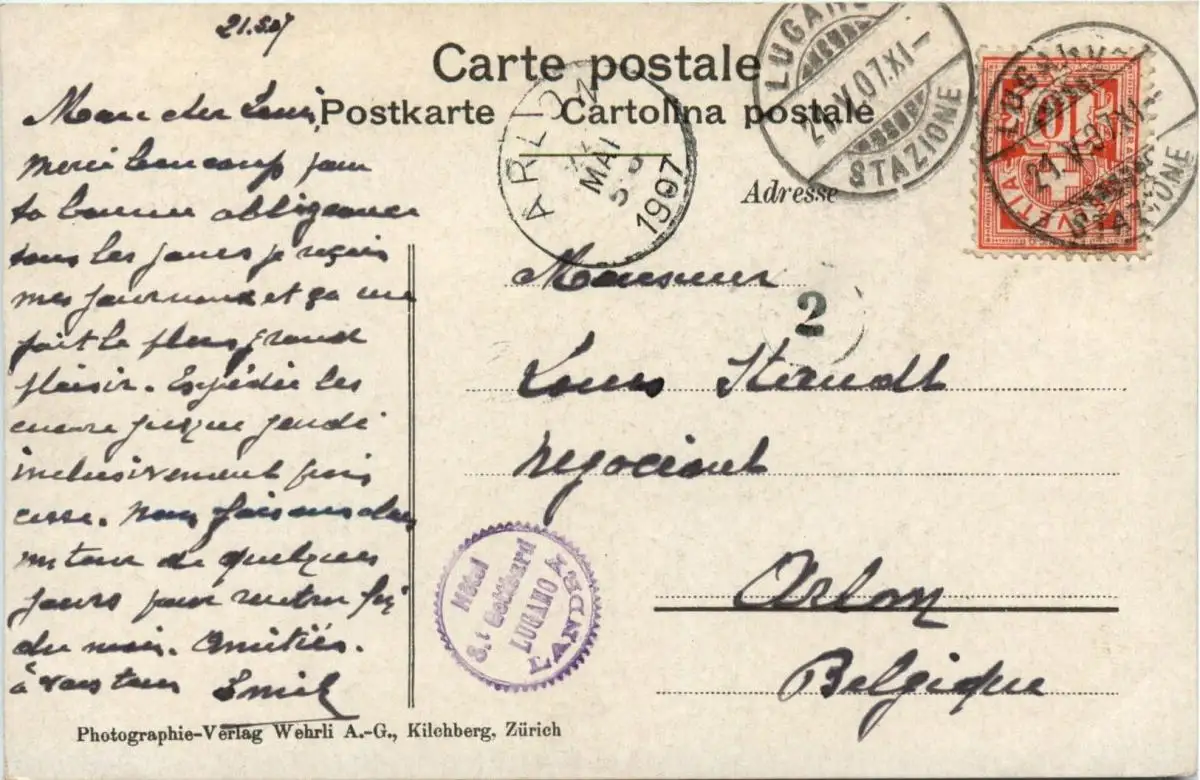 21.5.07
Carte postale
Postkarte Cartolina postale
Adresse
LUGANO
21.V.07.XI-
STAZIONE
LUGANO
21.V.07.XI-
STAZIONE
10
ARLON
MAI
1907
2
Mon cher Louis,
merci beaucoup pour
ta bonne obligeance
tous les jours je reçois
mes journaux et ça me
fait le plus grand
plaisir. Expédie les
encore jusque jeudi
inclusivement puis
cesse. nous faisons
un tour de quelques
jours pour rentrer fin
du mois. Amitiés.
à vous tous Emile
Monsieur
Louis Staudt
négociant
Arlon
Belgique
Hôtel
St Gotthard
LUGANO
LANDS
Photographie-Verlag Wehrli A.-G., Kilchberg, Zürich